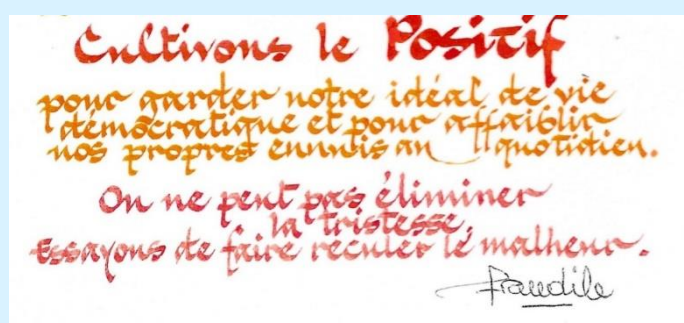 Cultivons le Positif
pour garder notre idéal de vie
démocratique et pour affaiblir
nos propres ennuis au quotidien.
On ne peut pas éliminer
la tristesse.
Essayons de faire reculer le malheur.